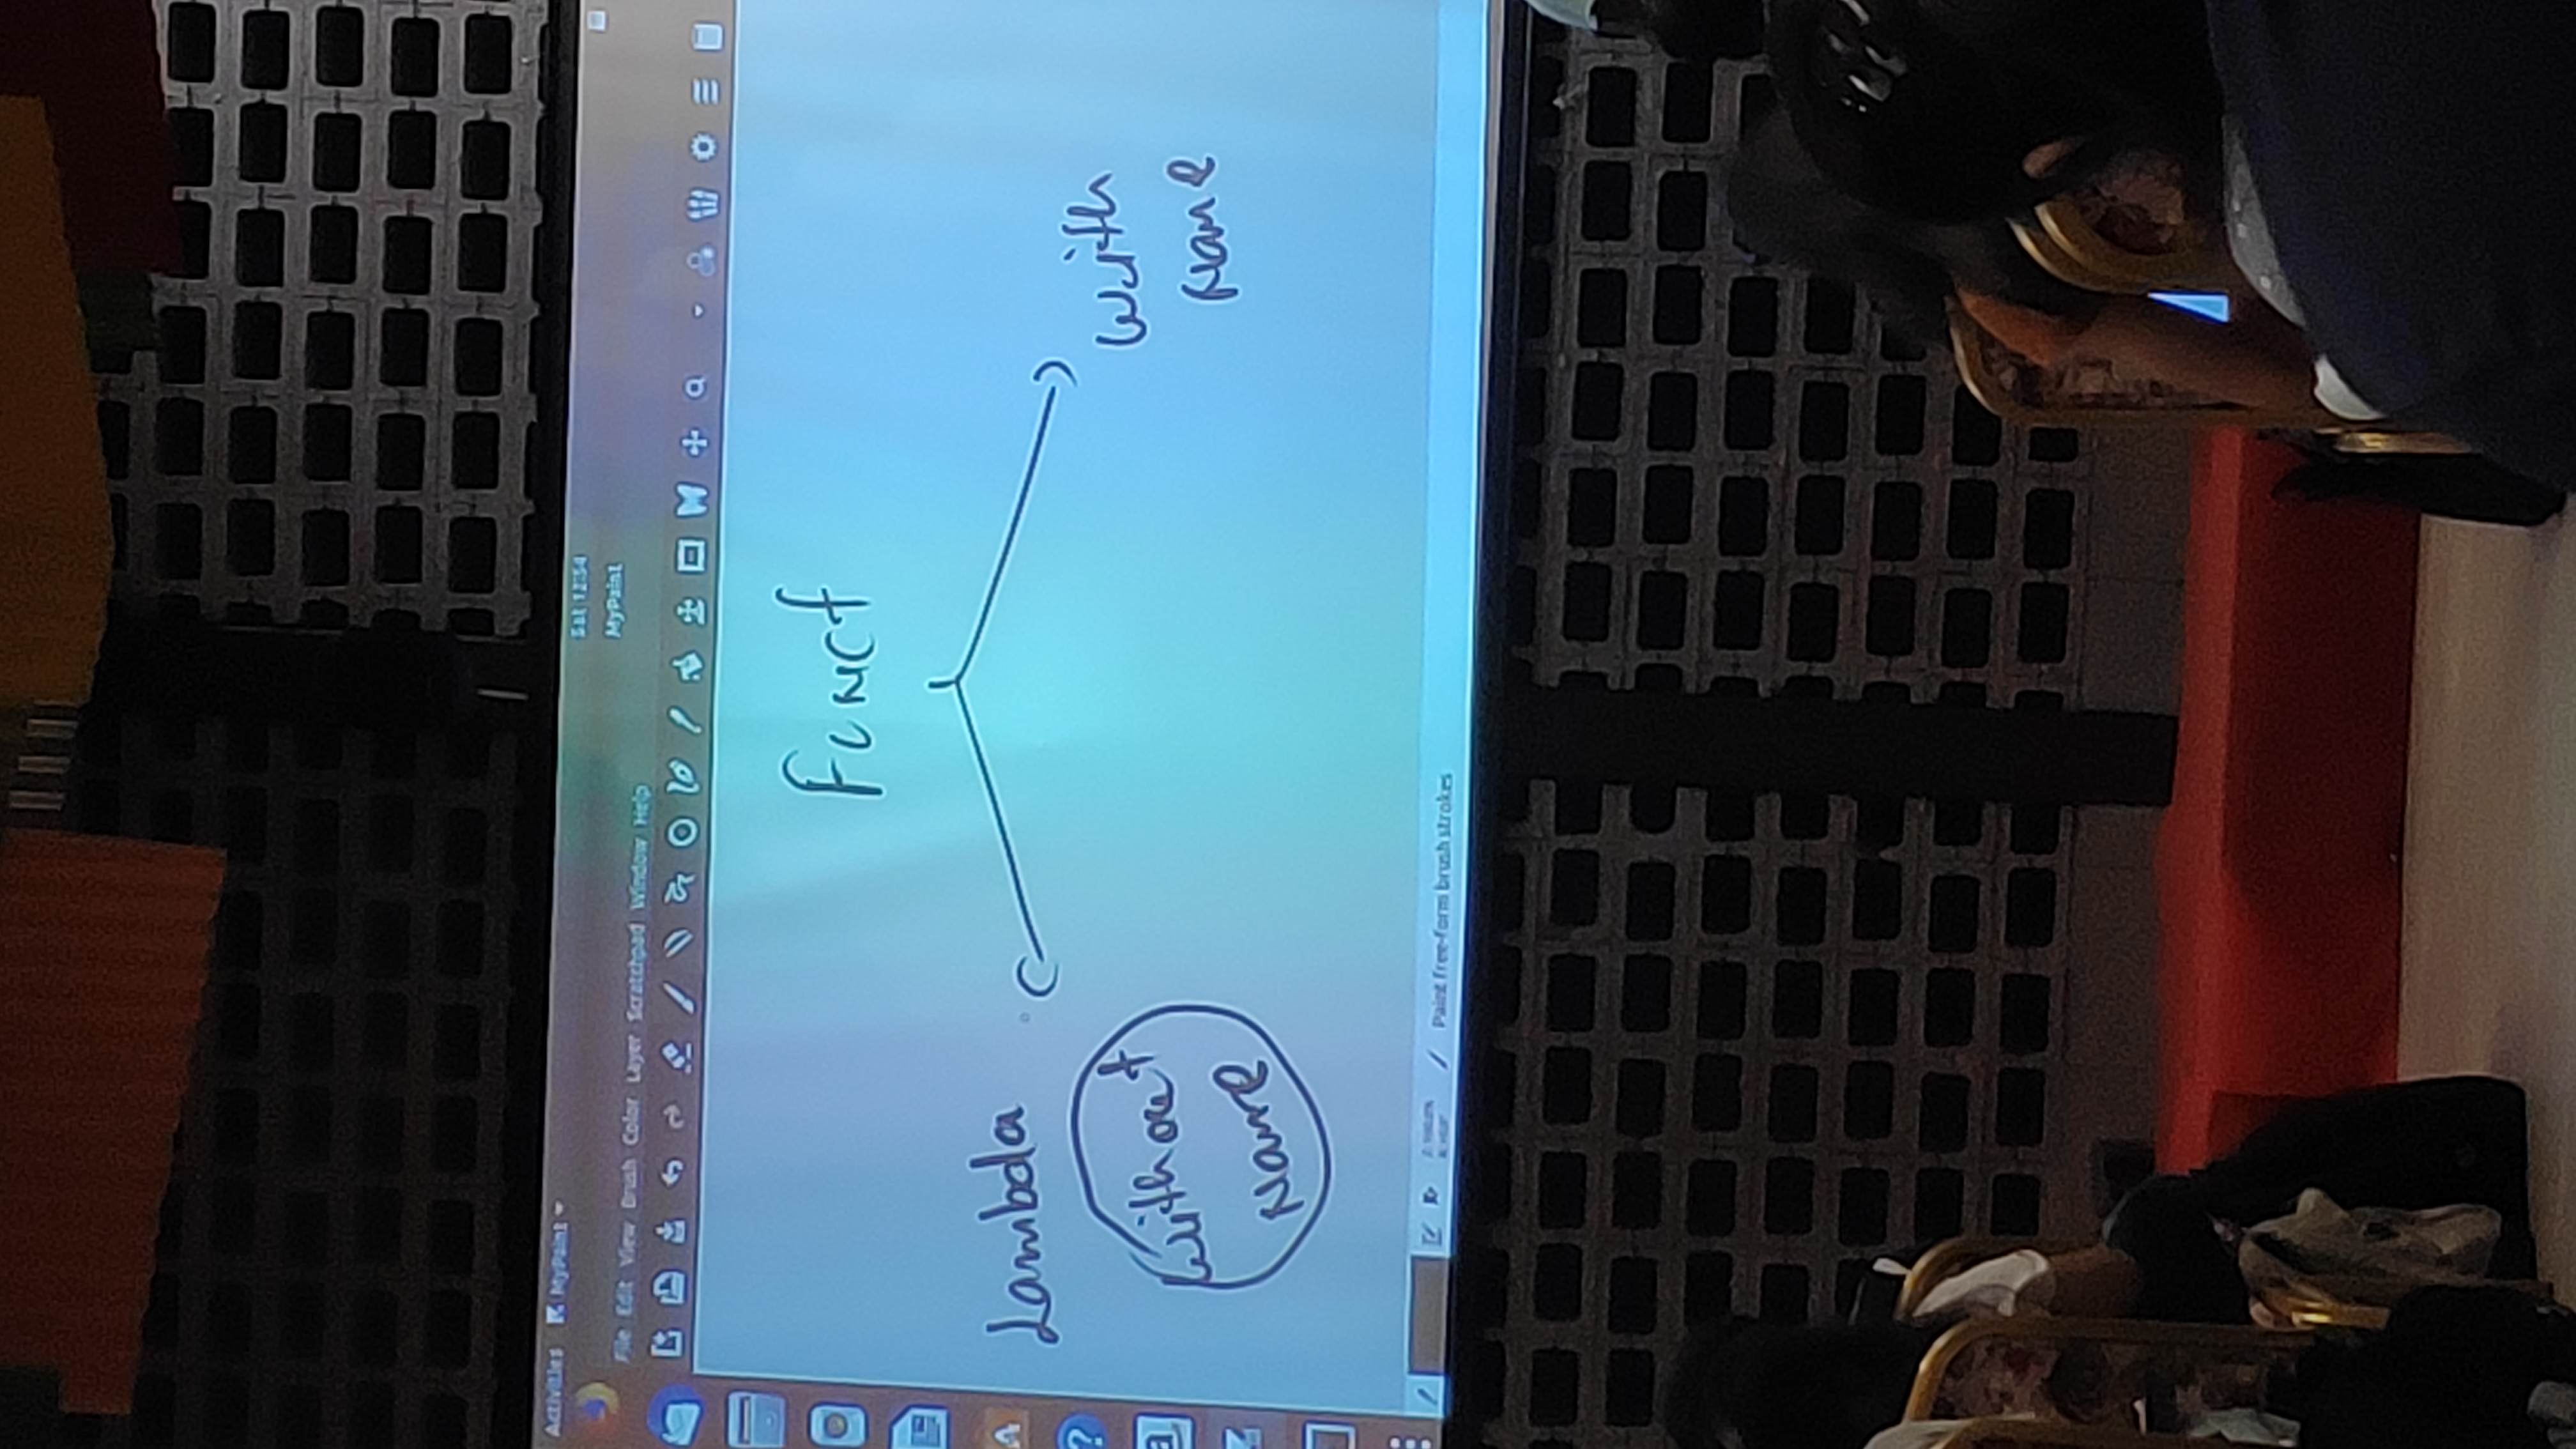 Activities MyPaint
Sat 12:54
MyPaint
File Edit View Brush Color Layer Scratchpad Window Help
Funct
Lambda
without
Name
with
Name
Paint free-form brush strokes